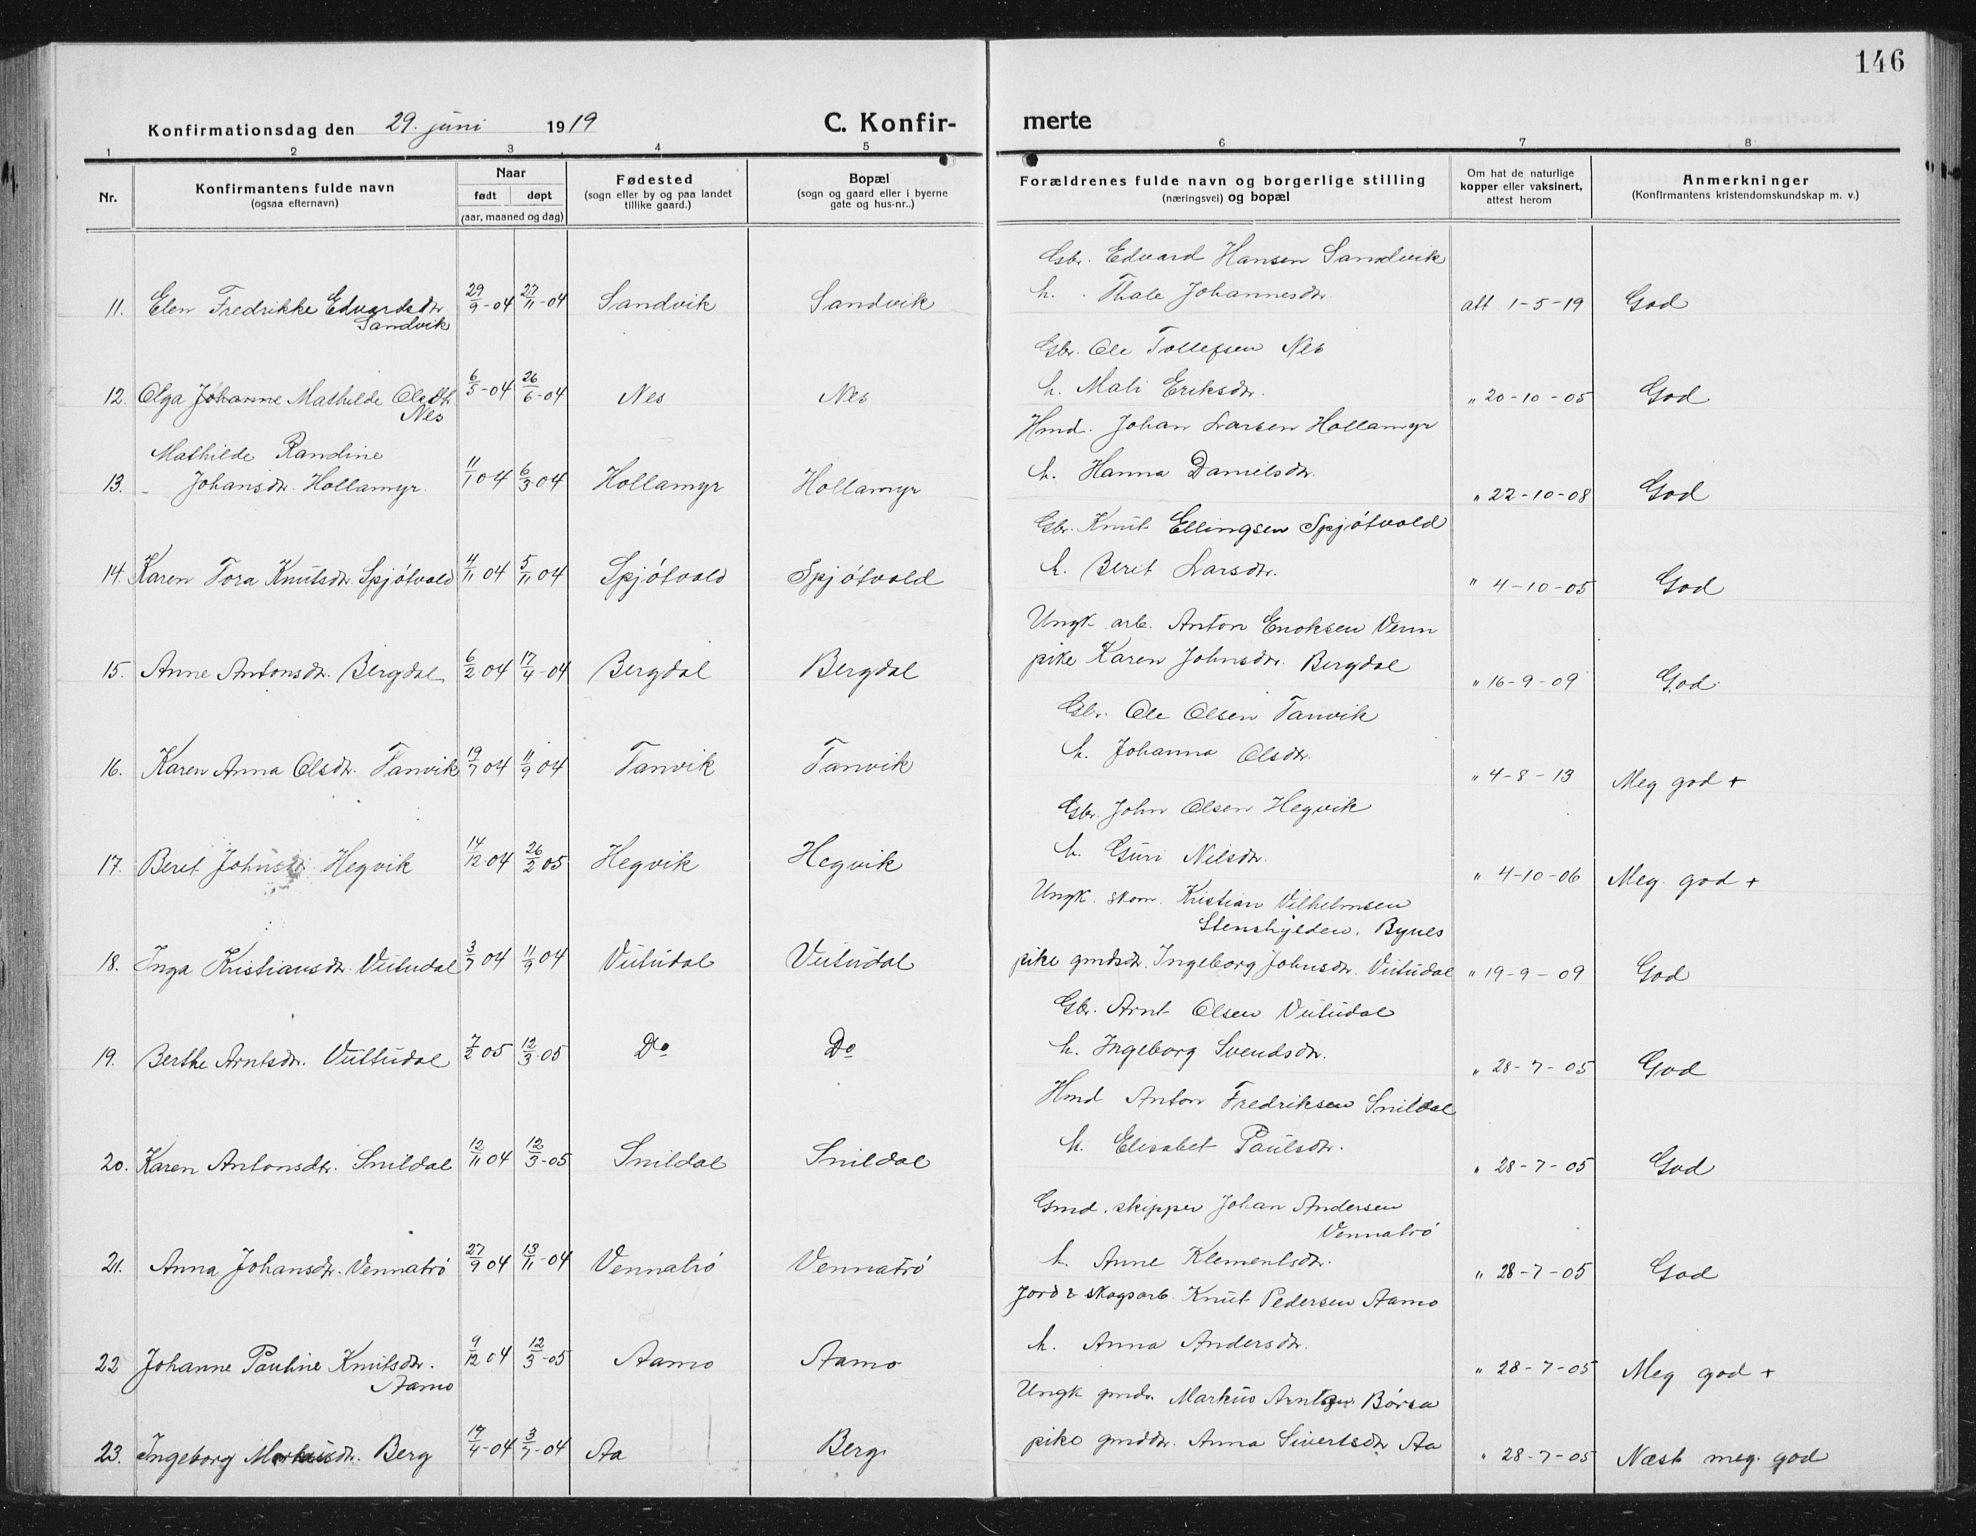 146
Konfirmationsdag den 29. juni 1919 C. Konfir-merte
1 2 3 4 5 6 7 8
Nr. Konfirmantens fulde navn (ogsaa efternavn) Naar født døpt (aar, maaned og dag) Fødested (sogn eller by og paa landet tillike gaard.) Bopæl (sogn og gaard eller i byerne gate og hus-nr..) Forældrenes fulde navn og borgerlige stilling (næringsvei) og bopæl Om hat de naturlige kopper eller vaksinert, attest herom Anmerkninger (Konfirmantens kristendomskundskap m. v.)
Gbr. Edvard Hansen Sandvik
11. Elen Fredrikke Edvardsdtr. 29/9-04 27/11-04 Sandvik Sandvik h. Thale Johannesdtr. att. 1-5-19 God
Sandvik
Gbr. Ole Tollefsen Nes
12. Olga Johanne Mathilde Olsdtr. 6/5-04 26/6-04 Nes Nes h. Mali Eriksdtr. " 20-10-05 God
Nes
Mathilde Randine Hmd. Johan Larsen Hollamyr
13. Johansdtr. Hollamyr. 11/1 04 6/3 04 Hollamyr Hollamyr h. Hanna Danielsdtr. " 22-10-08 God
Gbr. Knut Ellingsen Spjøtvold
14. Karen Tora Knutsdtr. Spjøtvold 4/11 04 5/11 04 Spjøtvold Spjøtvold h. Beret Larsdtr. " 4-10-05 God
Ungk. arb. Anton Enoksen Venn
15. Anne Antonsdtr. Bergdal 6/2 04 17/4-04 Bergdal Bergdal pike Karen Johnsdtr. Bergdal " 16-9-09 God
Gbr. Ole Olsen Tanvik
16. Karen Anna Olsdtr. Tanvik 19/7 04 11/9 04 Tanvik Tanvik h. Johanna Olsdtr. " 4-8-13 Meg god +
Gbr. John Olsen Hegvik
17. Beret Johnsdtr. Hegvik 14/12 04 26/2 05 Hegvik Hegvik h. Guri Nilsdtr. " 4-10-06 Meg. god +
Ungk. skom. Kristian Vilhelmsen
Stenshylden, Bynes
18. Inga Kristiansdtr. Vutudal 3/7 04 11/9 04 Vutudal Vutudal pike gmdsdtr. Ingeborg Johnsdtr. Vutudal " 19-9-09 God
Gbr. Arnt Olsen Vutudal
19. Berthe Arntsdtr. Vuttudal 7/2 05 12/3-05 Do Do h. Ingeborg Svendsdtr. " 28-7-05 God
Hmd Anton Fredriksen Snildal
20. Karen Antonsdtr. Snildal 12/11 04 12/3-05 Snildal Snildal h. Elisabet Paulsdtr. " 28-7-05 God
Gmd. skipper Johan Andersen
Vennatrø
21. Anna Johansdtr. Vennatrø 27/9 04 13/11-04 Vennatrø Vennatrø h. Anne Klementsdtr. " 28-7-05 God
Jord & skogsarb. Knut Pedersen Aamo
22 Johanne Pauline Knutsdtr. 9/12 04 12/3-05 Aamo Aamo h. Anna Andersdtr. " 28-7-05 Meg god +
Aamo
Ungk gmds. Markus Arntsen Børsa
23. Ingeborg Markusdtr. Berg 17/4-04 3/7-04 Aa Berg pike gmddtr. Anna Sivertsdtr Aa " 28-7-05 Næst meg. god